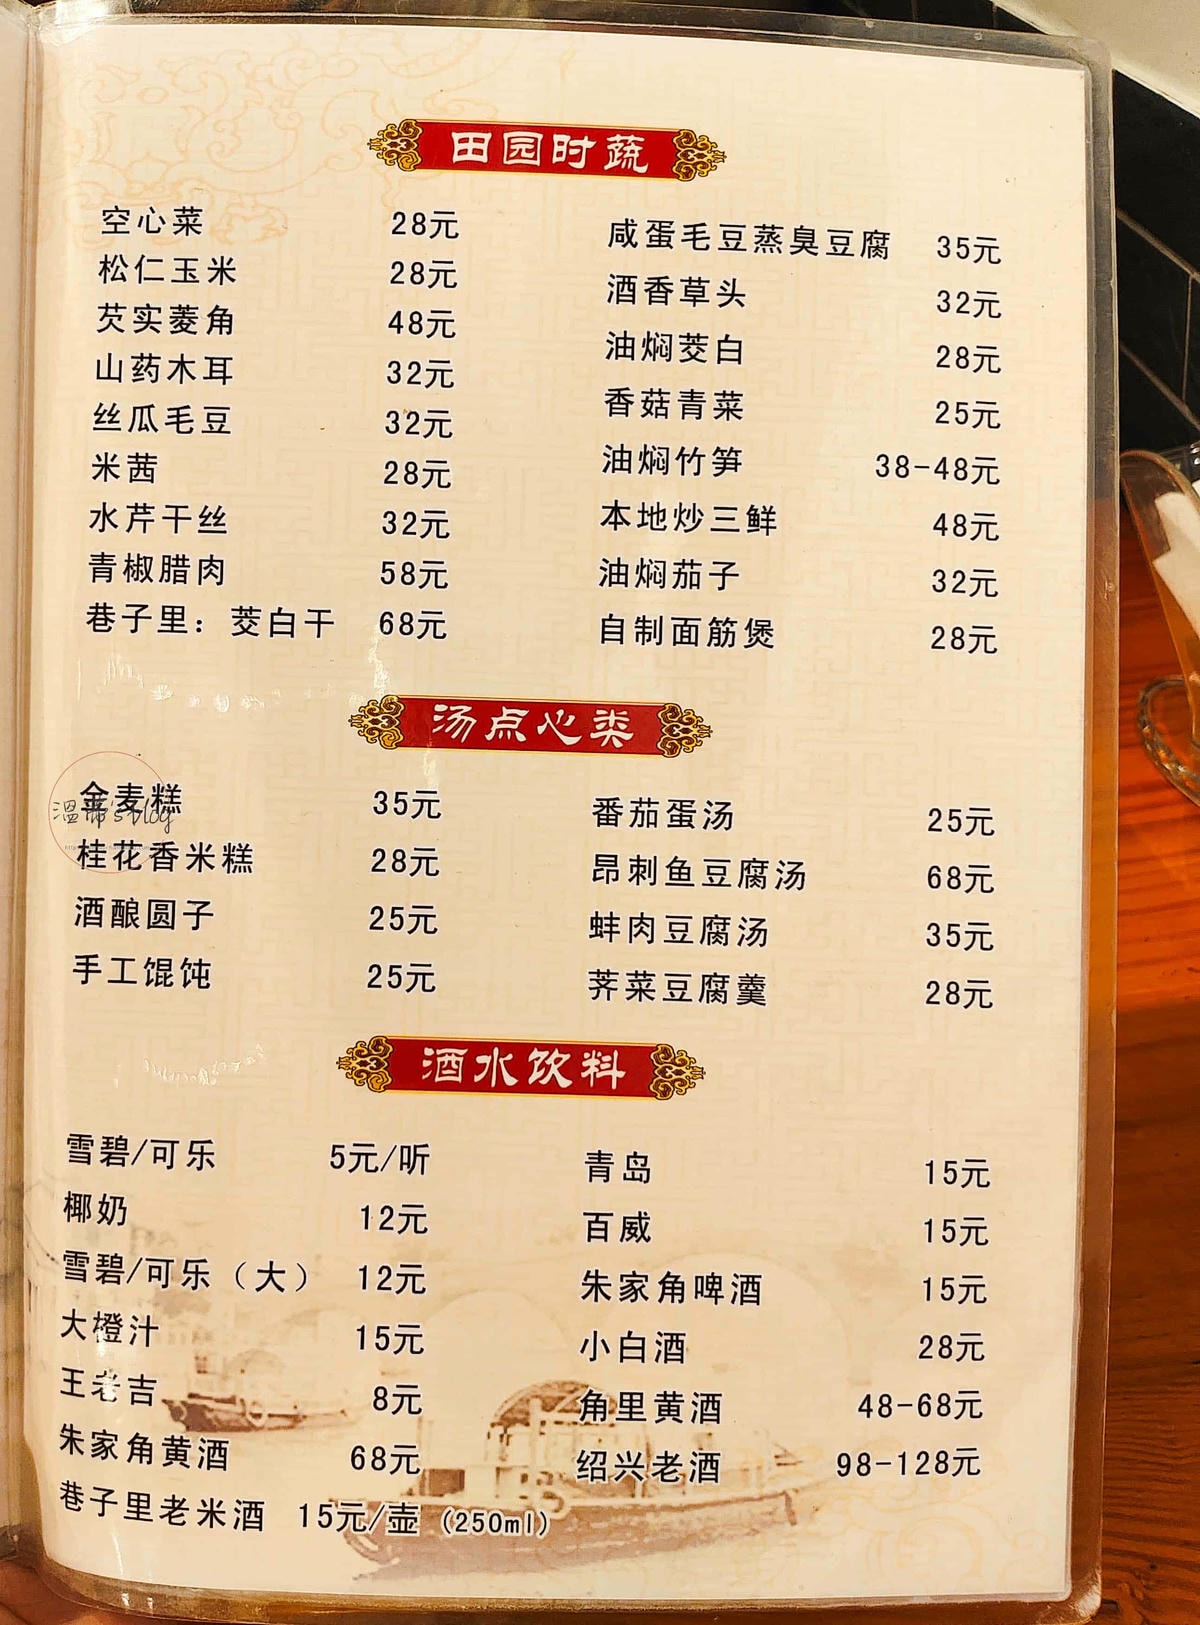 田园时蔬
空心菜 28元
松仁玉米 28元
芡实菱角 48元
山药木耳 32元
丝瓜毛豆 32元
米茜 28元
水芹干丝 32元
青椒腊肉 58元
巷子里：茭白干 68元
咸蛋毛豆蒸臭豆腐 35元
酒香草头 32元
油焖茭白 28元
香菇青菜 25元
油焖竹笋 38-48元
本地炒三鲜 48元
油焖茄子 32元
自制面筋煲 28元
汤点心类
金麦糕 35元
桂花香米糕 28元
酒酿圆子 25元
手工馄饨 25元
番茄蛋汤 25元
昂刺鱼豆腐汤 68元
蚌肉豆腐汤 35元
荠菜豆腐羹 28元
酒水饮料
雪碧/可乐 5元/听
椰奶 12元
雪碧/可乐（大） 12元
大橙汁 15元
王老吉 8元
朱家角黄酒 68元
巷子里老米酒 15元/壶 (250ml)
青岛 15元
百威 15元
朱家角啤酒 15元
小白酒 28元
角里黄酒 48-68元
绍兴老酒 98-128元